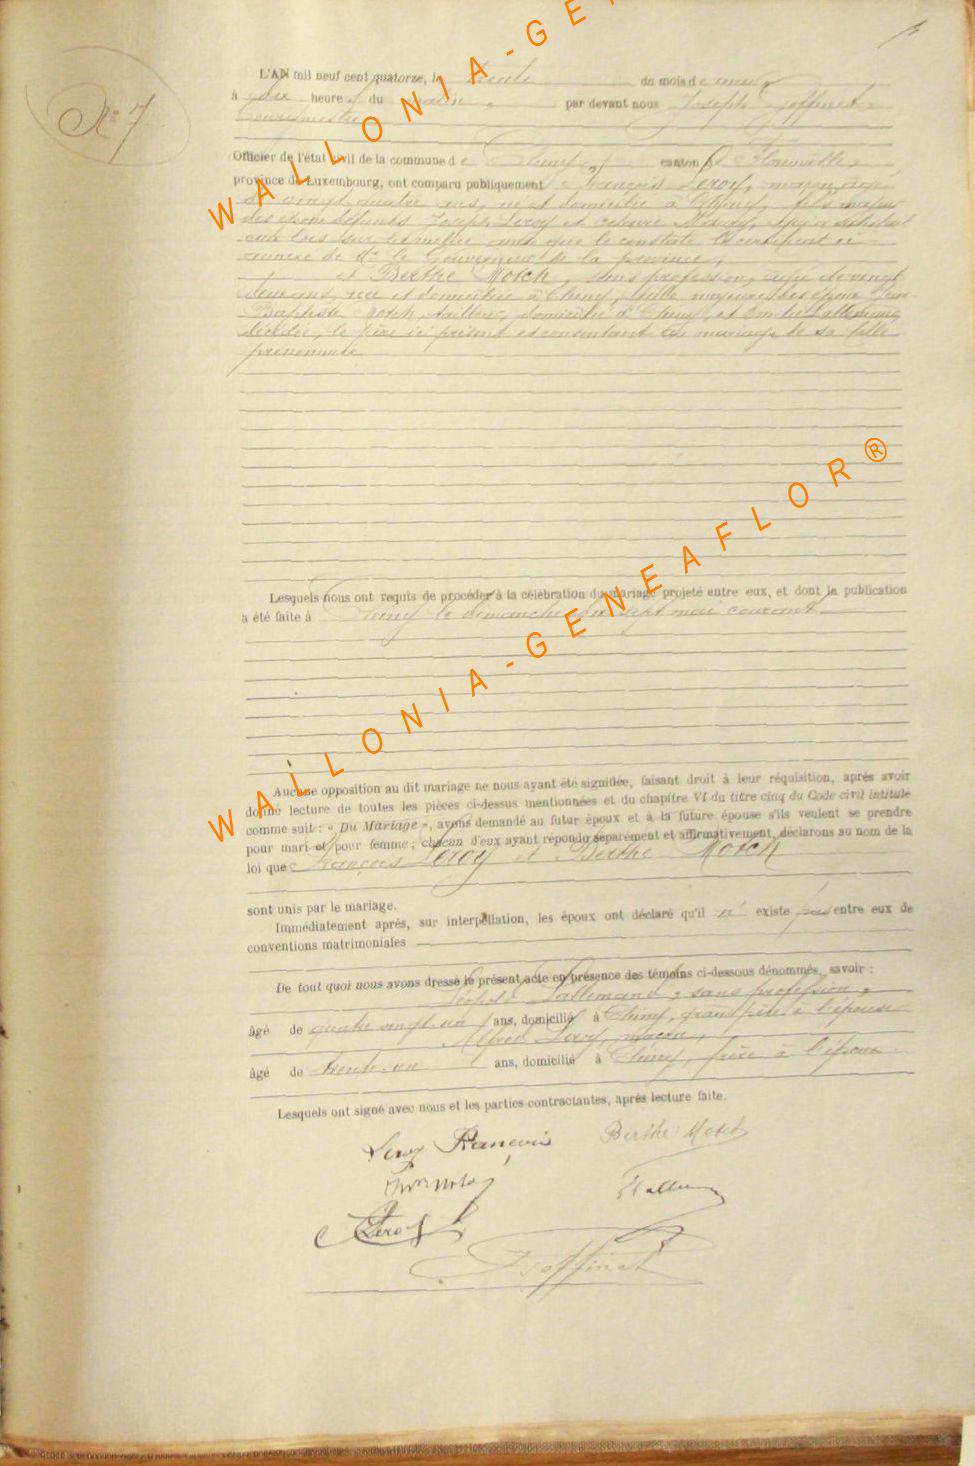 N° 7
L'AN mil neuf cent quatorze, le trente du mois de mai,
à dix heures du matin, par devant nous Joseph Joffinet,
Bourgmestre
Officier de l'état civil de la commune de Chiny, canton de Florenville,
province de Luxembourg, ont comparu publiquement François Leroy, maçon, âgé
de vingt quatre ans, né et domicilié à Chiny, fils majeur
des époux défunts Joseph Leroy et Octavie ayant satisfait
aux lois sur la milice ainsi que le constate le certificat ci
annexé de Mr le Gouverneur de la province,
et Berthe Motch, sans profession, âgée de vingt
deux ans, née et domiciliée à Chiny, fille majeure des époux Jean
Baptiste Motch, tailleur, domicilié à Chiny, et Lallemand,
décédée, le père ici présent et consentant au mariage de sa fille
prénommée
Lesquels nous ont requis de procéder à la célébration du mariage projeté entre eux, et dont la publication
a été faite à Chiny le dimanche dix sept mai courant
Aucune opposition au dit mariage ne nous ayant été signifiée, faisant droit à leur réquisition, après avoir
donné lecture de toutes les pièces ci-dessus mentionnées et du chapitre VI du titre cinq du Code civil intitulé
comme suit : « Du Mariage », avons demandé au futur époux et à la future épouse s'ils veulent se prendre
pour mari et pour femme ; chacun d'eux ayant répondu séparément et affirmativement, déclarons au nom de la
loi que François Leroy et Berthe Motch
sont unis par le mariage.
Immédiatement après, sur interpellation, les époux ont déclaré qu'il n' existe pas entre eux de
conventions matrimoniales
De tout quoi nous avons dressé le présent acte en présence des témoins ci-dessous dénommés, savoir :
Léopold Lallemand, sans profession,
âgé de quatre vingt un ans, domicilié à Chiny, grand père à l'épouse
Alfred Leroy, maçon,
âgé de trente un ans, domicilié à Chiny, frère à l'époux
Lesquels ont signé avec nous et les parties contractantes, après lecture faite.
Leroy François Berthe Motch
Leroy
Joffinet
WALLONIA-GE
WALLONIA-GENEAFLOR®